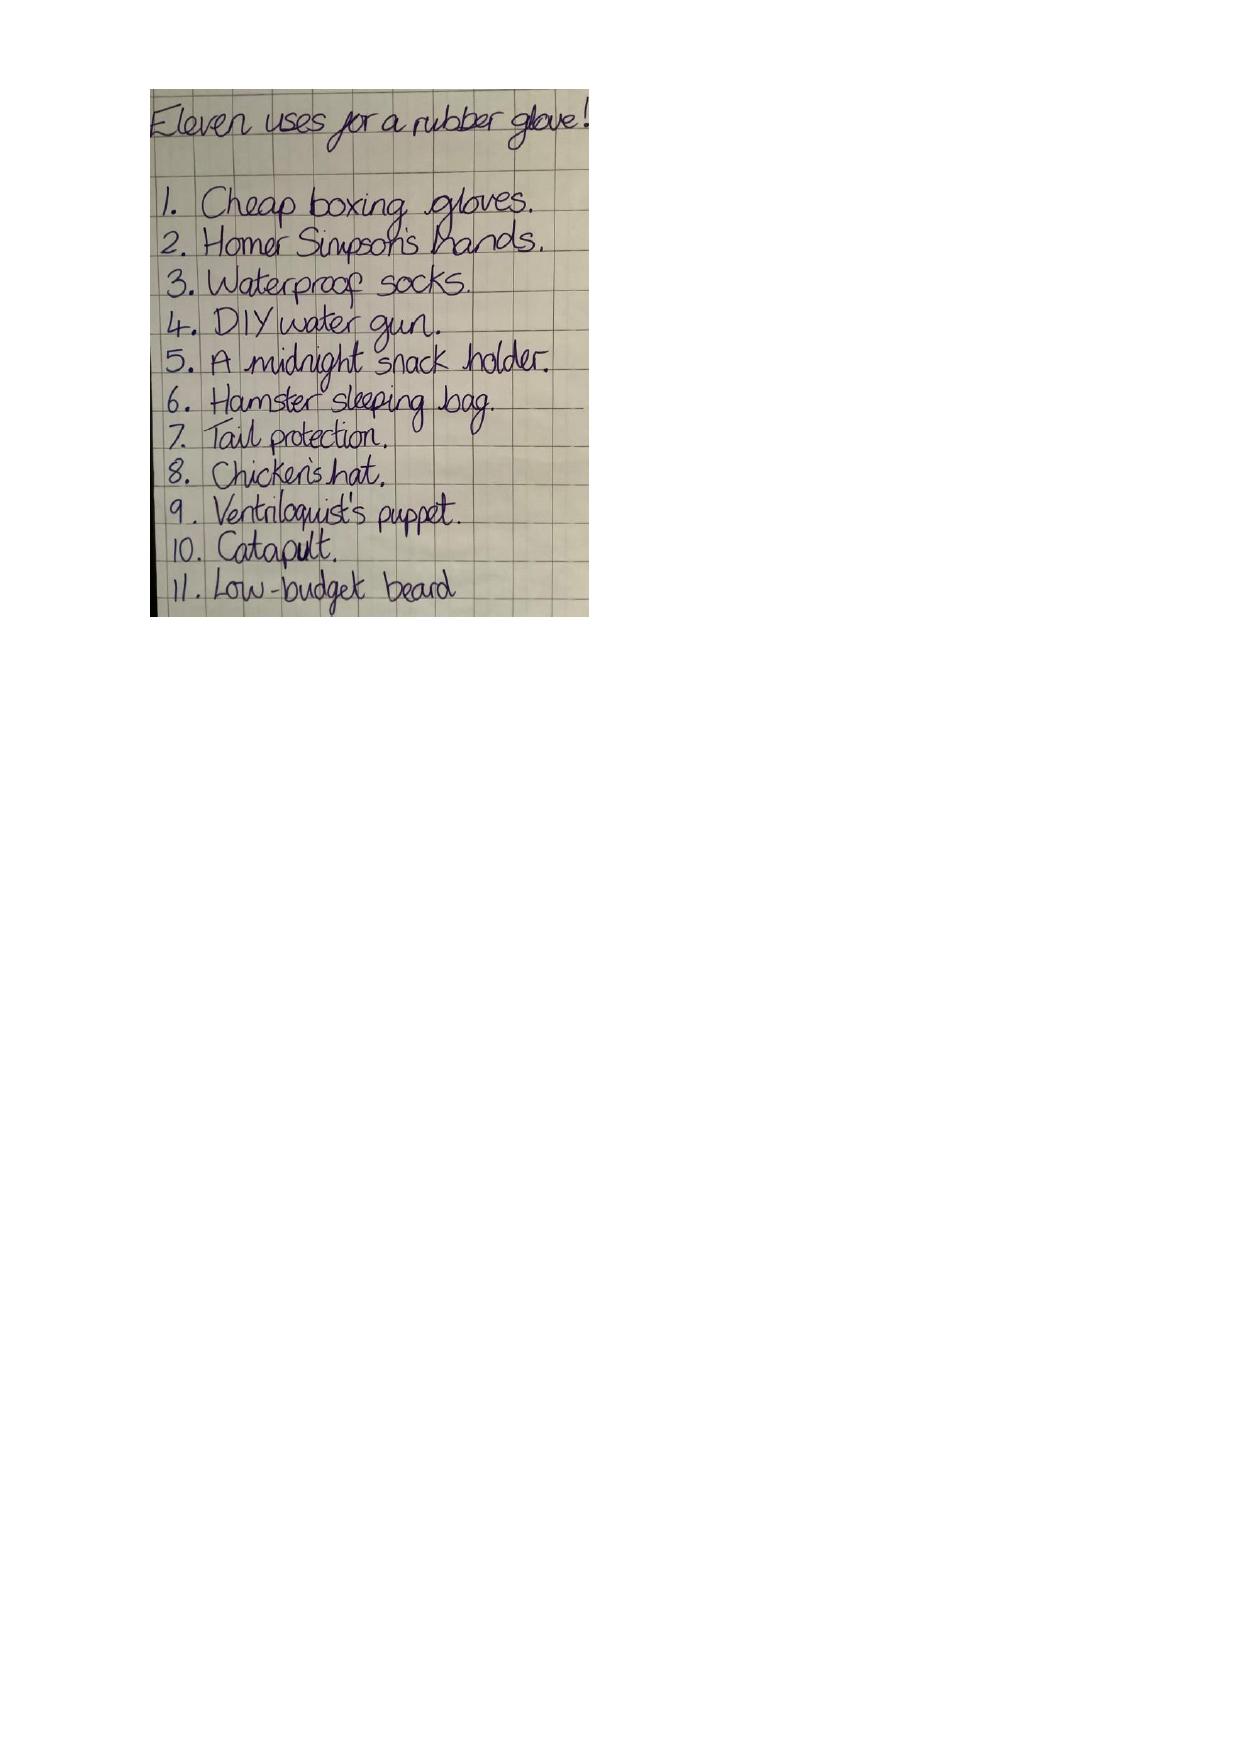 Eleven uses for a rubber glove!
1. Cheap boxing gloves.
2. Homer Simpson's hands.
3. Waterproof socks.
4. DIY water gun.
5. A midnight snack holder.
6. Hamster sleeping bag.
7. Tail protection.
8. Chicken's hat.
9. Ventriloquist's puppet.
10. Catapult.
11. Low-budget beard